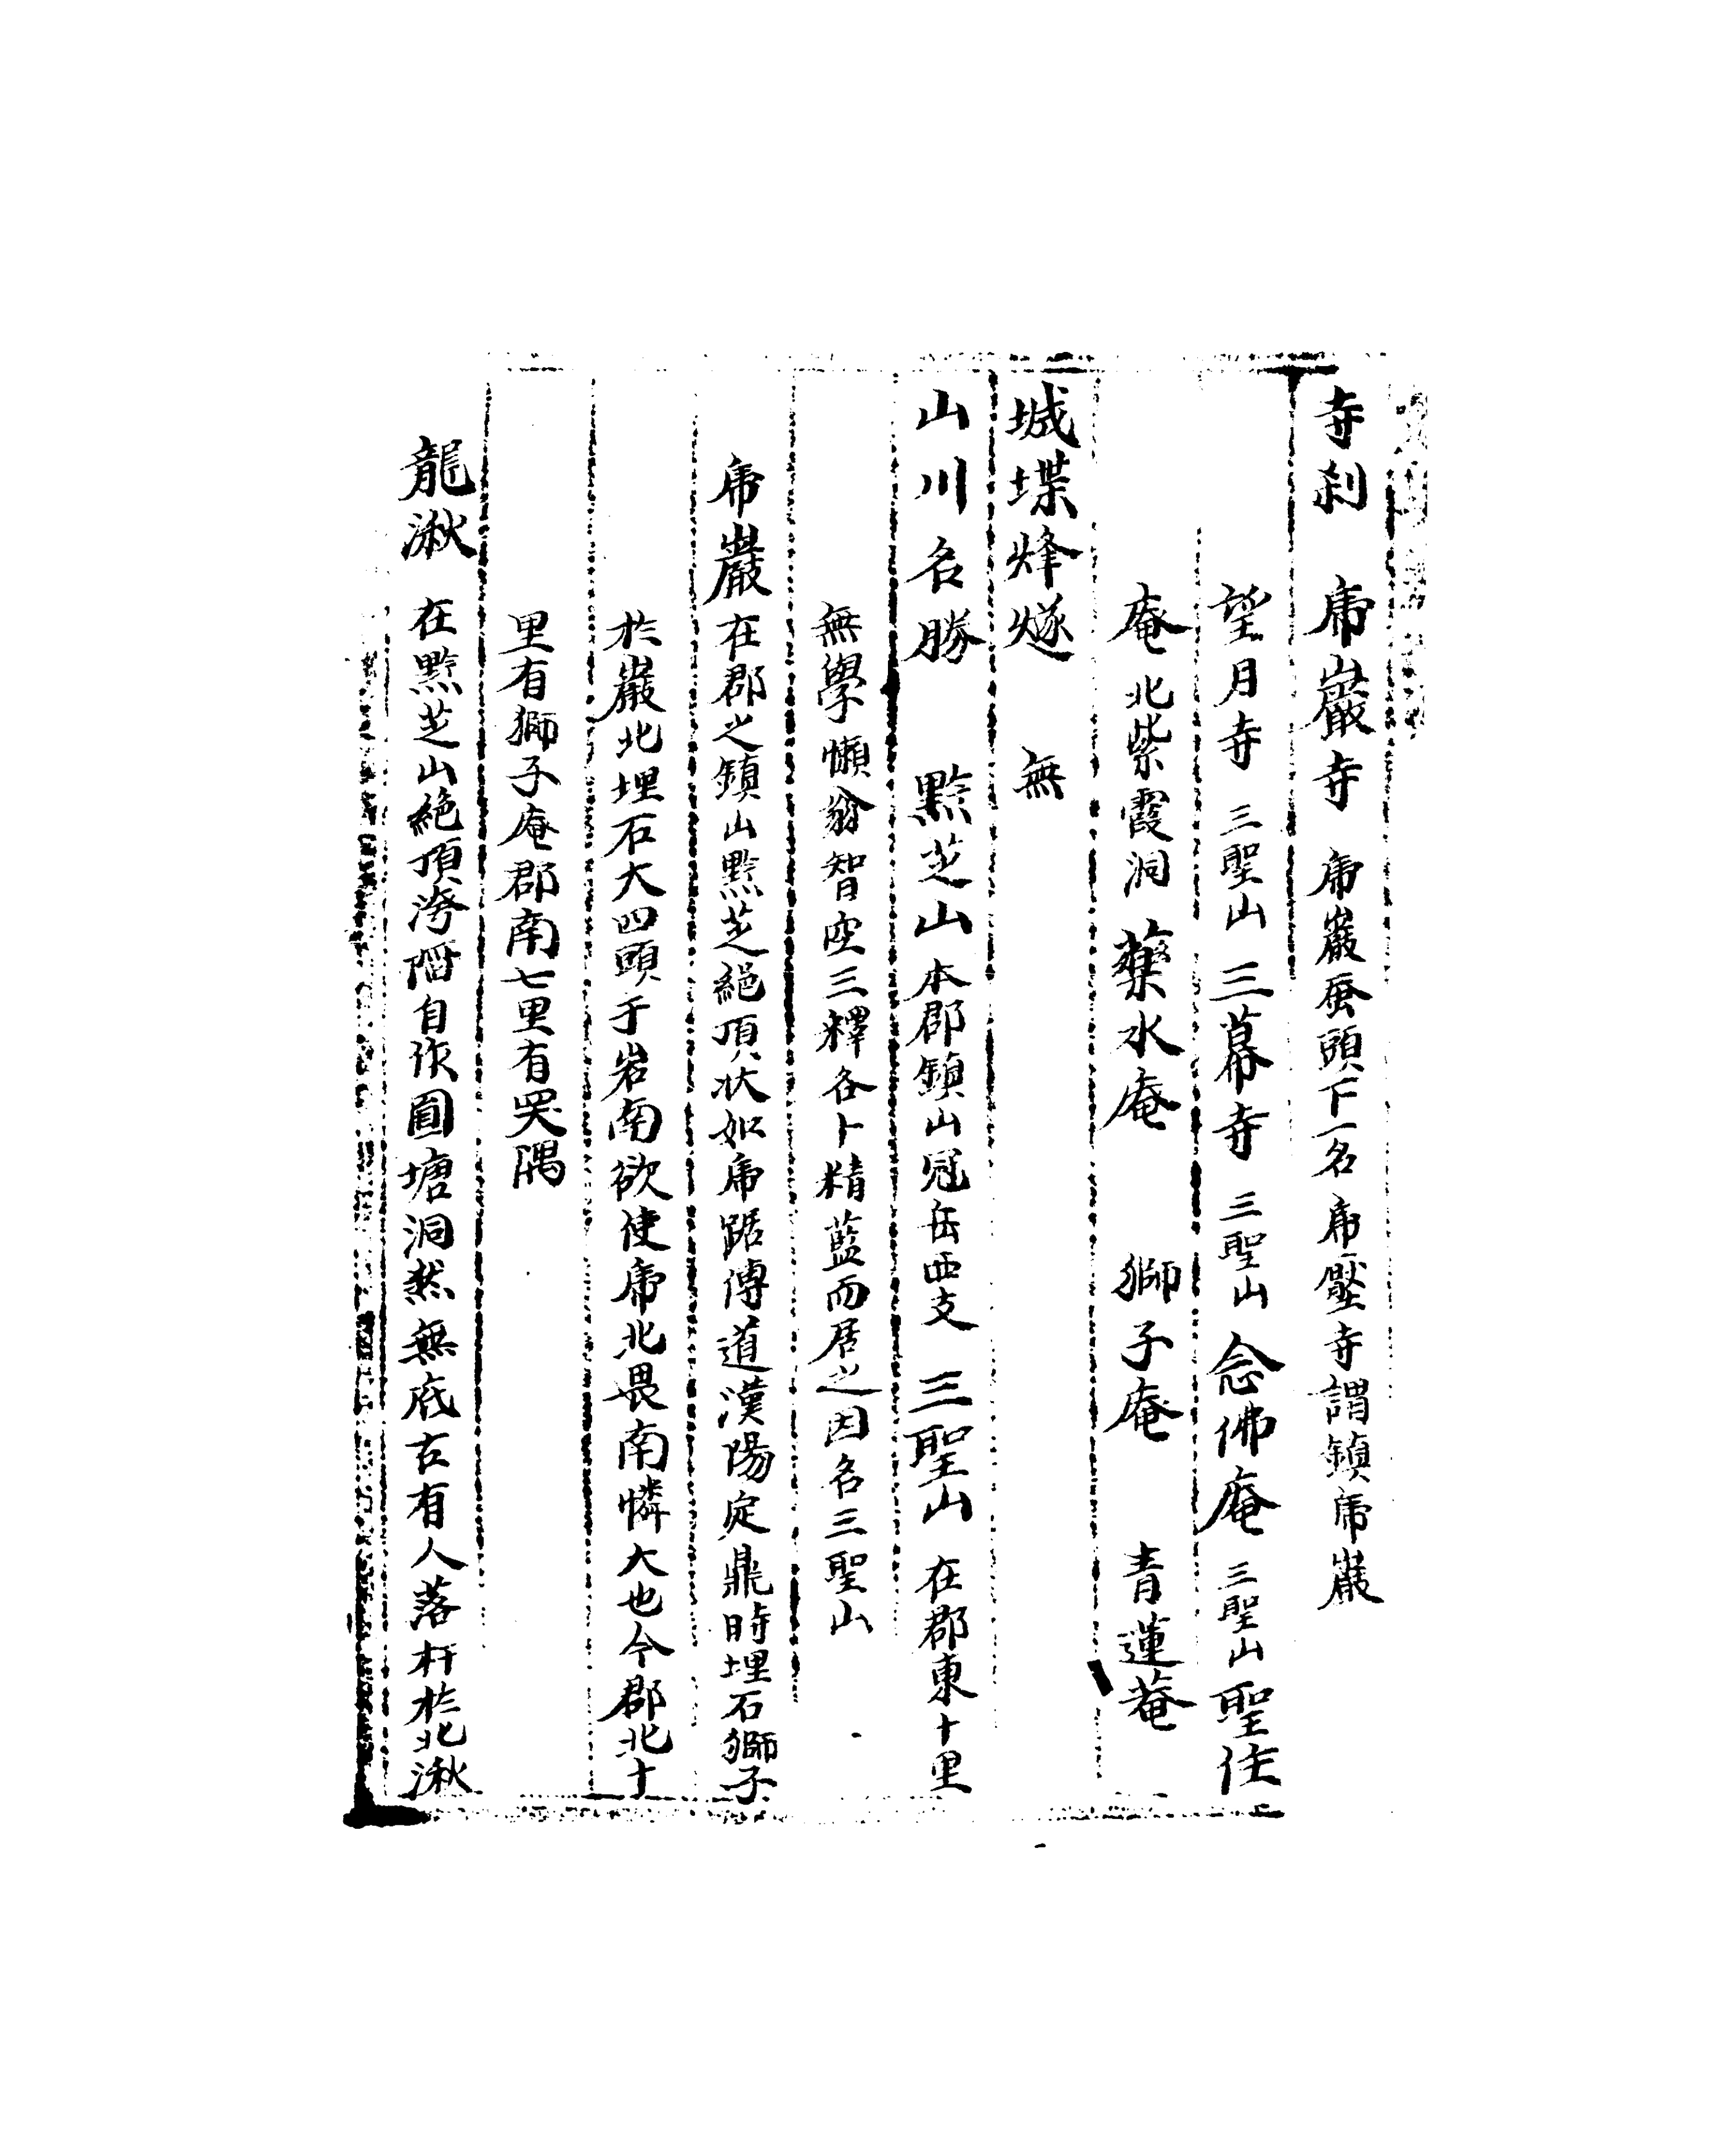 寺刹 虎巖寺 虎巖蚕頭下一名虎壓寺謂鎮虎巖
望月寺 三聖山 三幕寺 三聖山 念佛庵 三聖山 聖住
庵 北紫霞洞 藥水庵 獅子庵 青蓮菴
城堞烽燧 無
山川名勝 黔芝山 本郡鎮山冠岳西支 三聖山 在郡東十里
無學懶翁智空三釋各卜精藍而居之因名三聖山
虎巖 在郡之鎮山黔芝絕頂状如虎踞傳道漢陽定鼎時埋石獅子
於巖北埋石犬四頭于岩南欲使虎北畏南憐犬也今郡北十
里有獅子庵郡南七里有哭隅
龍湫 在黔芝山絶頂滂㴖自作圓塘洞然無底古有人落杆於北湫